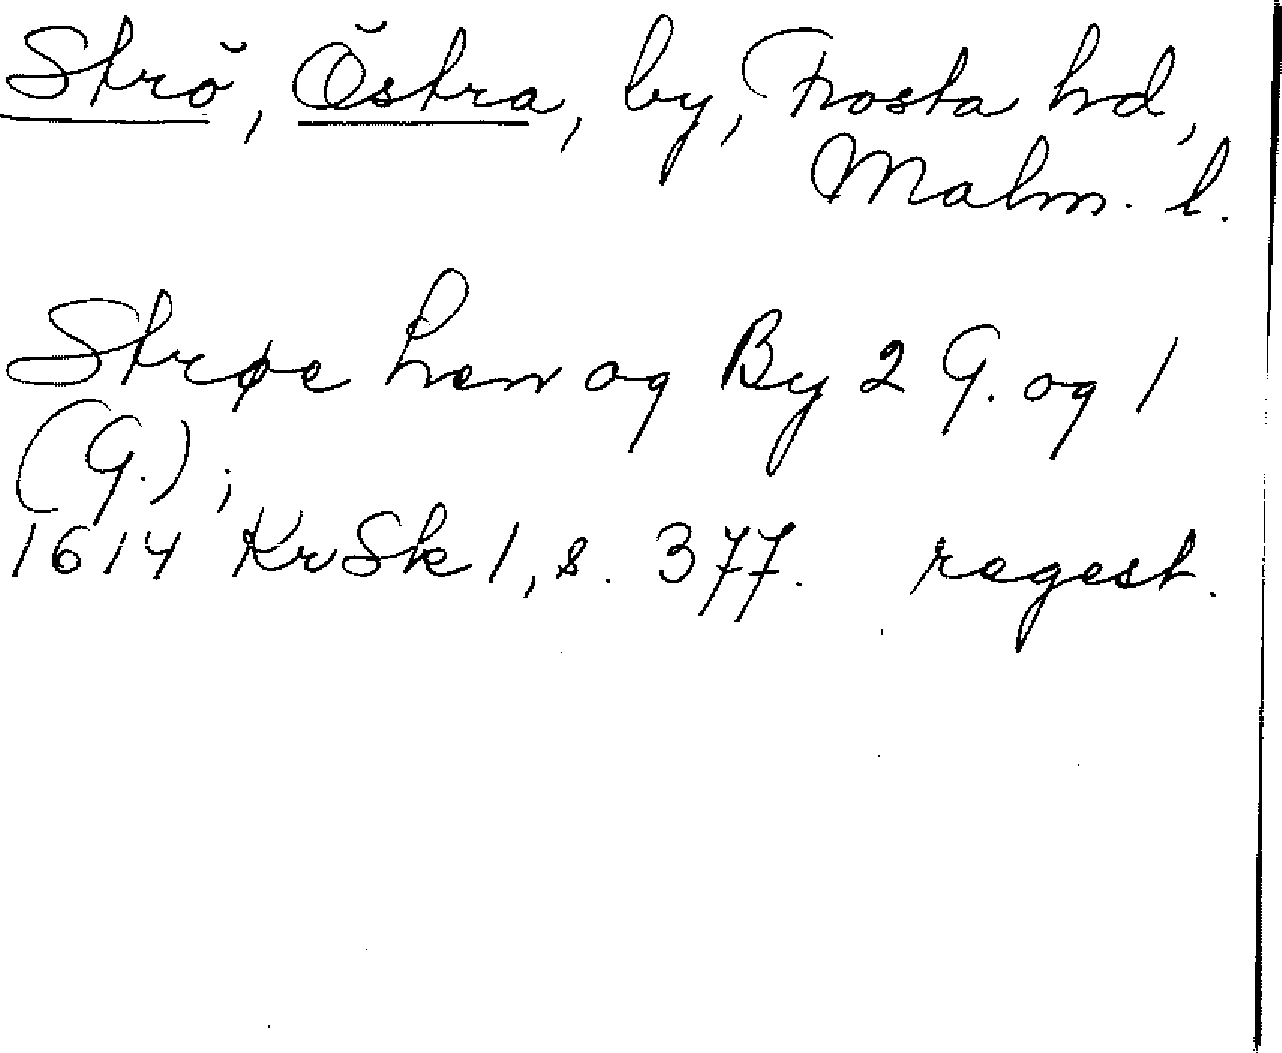 Strö, Östra, by, Frosta hd,
Malm. l.
Strøe Len og By 2 G. og 1
(G.);
1614 KrSk 1, s. 377. regest.